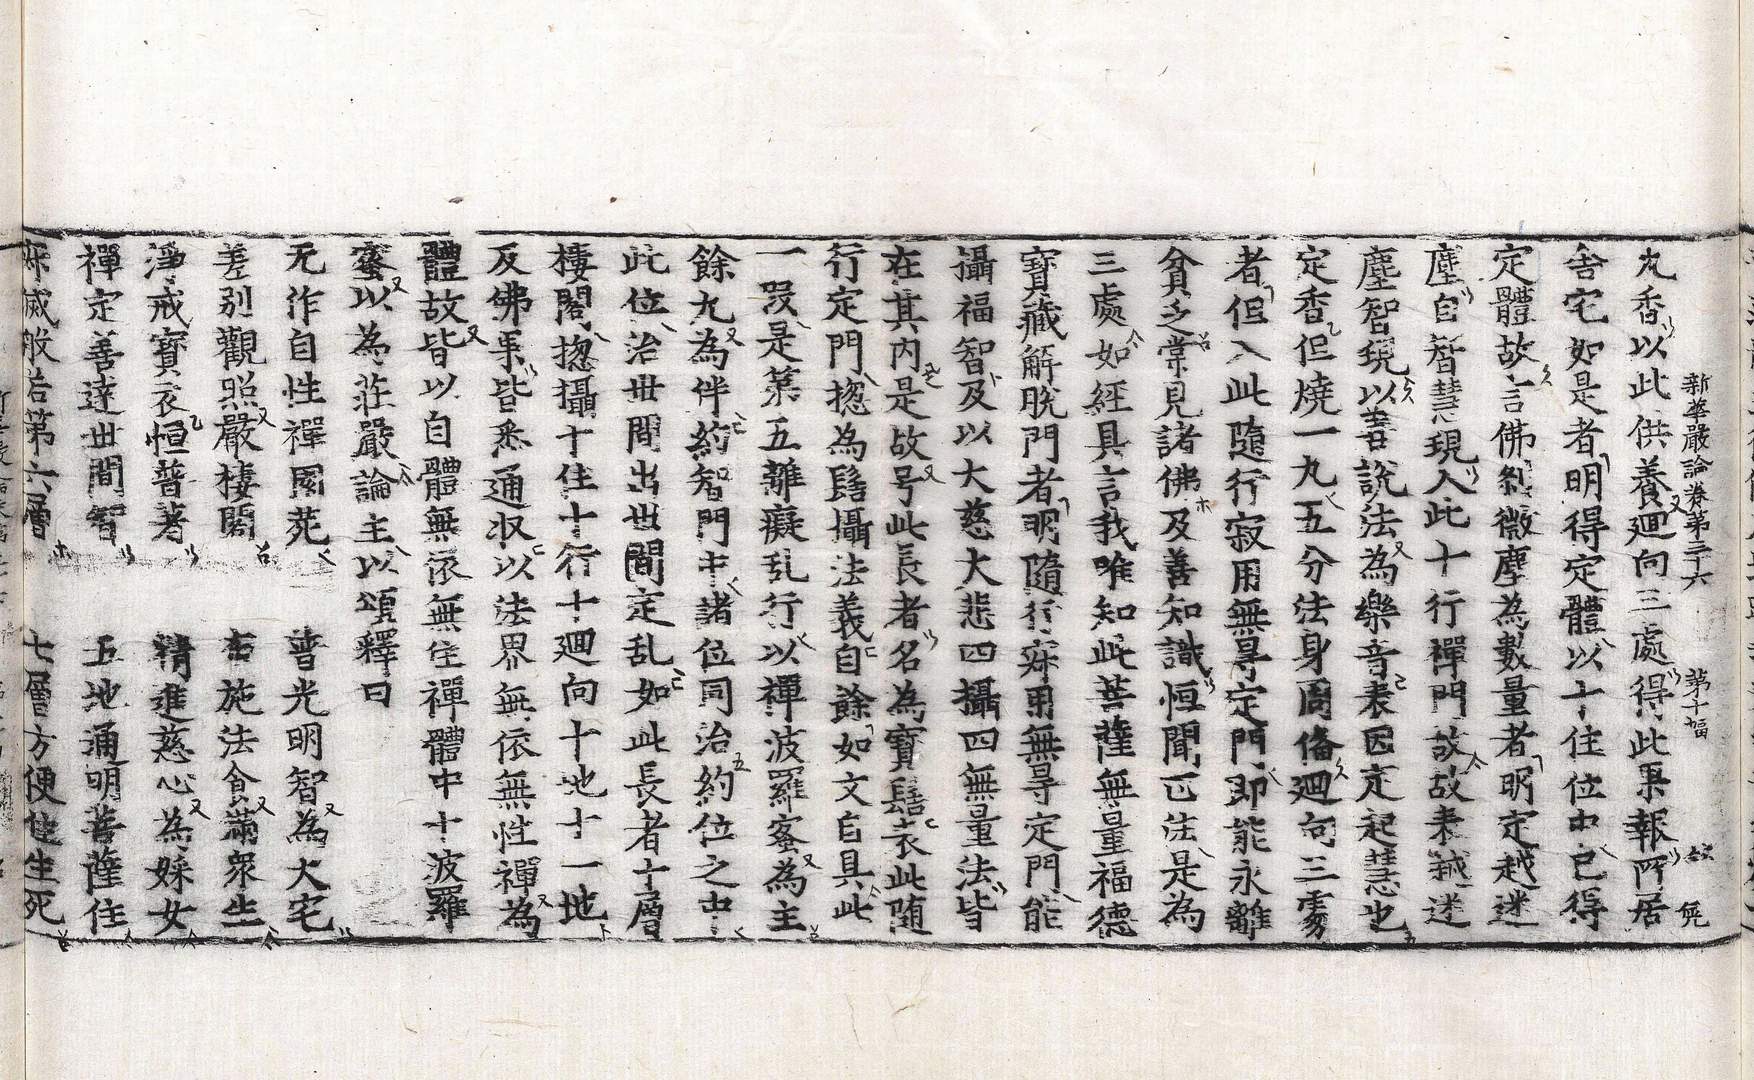 新華嚴論卷第三十六 第十一幅
丸香以此供養廻向三處得此果報所居
舍宅如是者明得定體以十住位中已得
定體故言佛刹微塵爲數量者明定越迷
塵自智慧現入此十行禪門故故来
塵智現以善說法為樂音表因定起慧也
定香但燒一丸五分法身周俻廻向三處
者但入此隨行寂用無㝵定門即能永離
貧乏常見諸佛及善知識恒聞正法是為
三處如經具言我唯知此菩薩無量福德
寶藏解脫門者明隨行寂用無㝵定門能
攝福智及以大慈大悲四攝四無量法皆
在其内是故号此長者名為寶髻表此随
行定門揔為髻攝法義自餘如文自具此
一段是第五離癡乱行以禪波羅蜜為主
餘九為伴約智門中諸位同治約位之中
此位治世間出世間定乱如此長者十層
樓閣揔攝十住十行十廻向十地十一地
及佛果皆悉通収以法界無依無性禪為
體故皆以自體無依無住禪體中十波羅
蜜以為莊嚴論主以頌釋曰
无作自性禪園菀 普光明智為大宅
差别觀照嚴樓閣 布施法食滿衆生
淨戒寶衣恒普著 精進慈心為婇女
禪定善達世間智 五地通明菩薩住
寂滅般若第六層 七層方便住生死